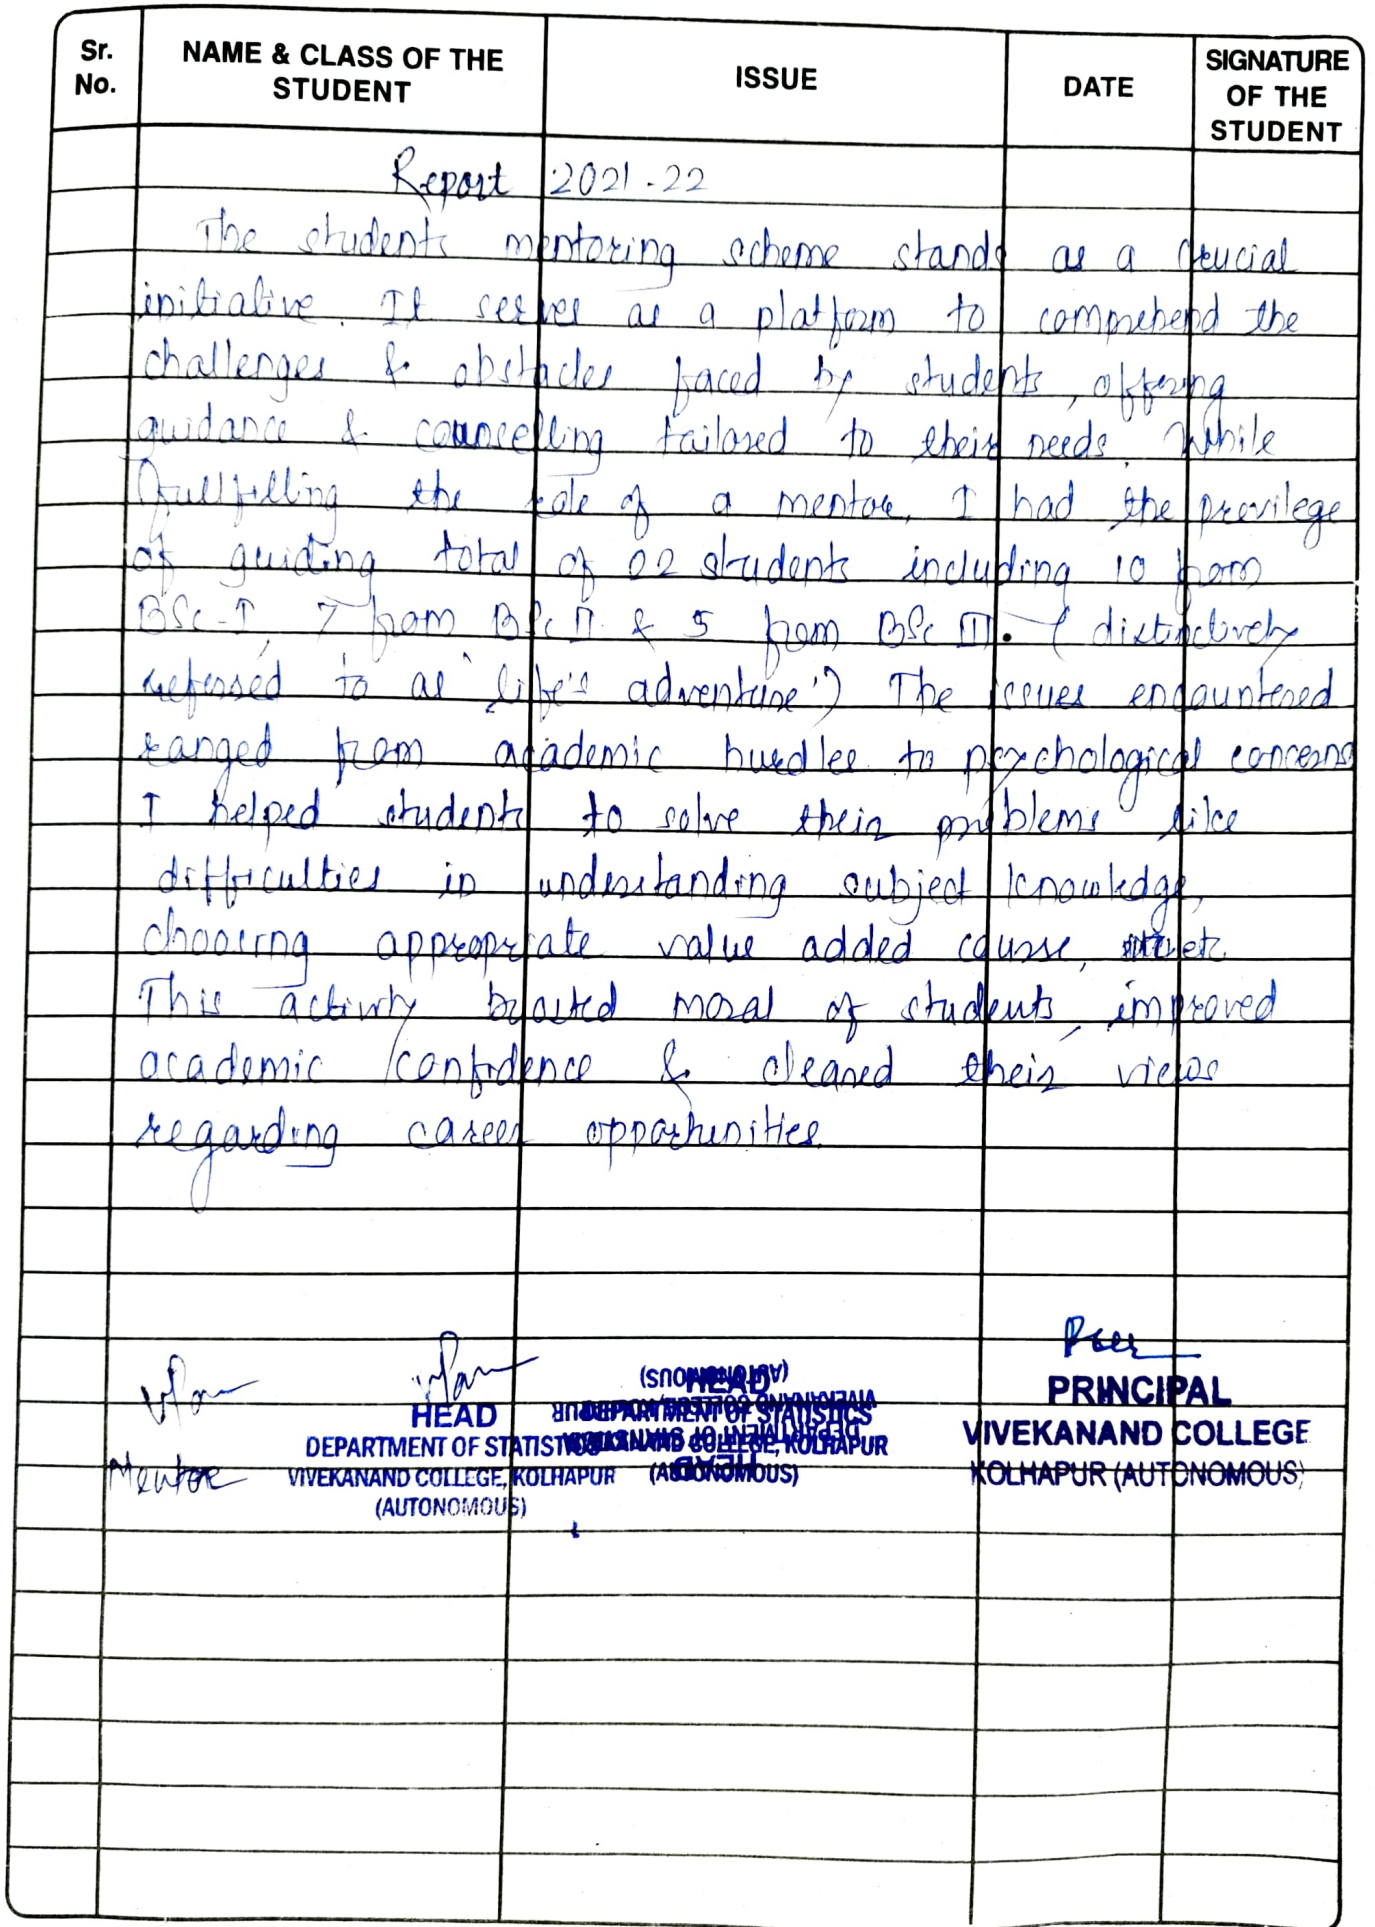 Sr. No.
NAME & CLASS OF THE STUDENT
ISSUE
DATE
SIGNATURE OF THE STUDENT
Report 2021-22
The students mentoring scheme stands as a crucial
initiative. It serves as a platform to comprehend the
challenges & obstacles faced by students, offering
guidance & councelling tailored to their needs. While
fullfilling the role of a mentor, I had the previlege
of guiding total of 22 students including 10 from
BSc-I, 7 from BSc II & 5 from BSc III. ( distinctively
referred to as 'life's adventure') The issues encountered
ranged from academic hurdles to psychological concerns
I helped students to solve their problems like
difficulties in understanding subject knowledge,
choosing appropriate value added course, etc.
This activity boosted moral of students, improved
academic confidence & cleared their views
regarding career opportunities.
Mentor
HEAD
DEPARTMENT OF STATISTICS
VIVEKANAND COLLEGE, KOLHAPUR
(AUTONOMOUS)
HEAD
DEPARTMENT OF STATISTICS
VIVEKANAND COLLEGE, KOLHAPUR
(AUTONOMOUS)
PRINCIPAL
VIVEKANAND COLLEGE
KOLHAPUR (AUTONOMOUS)